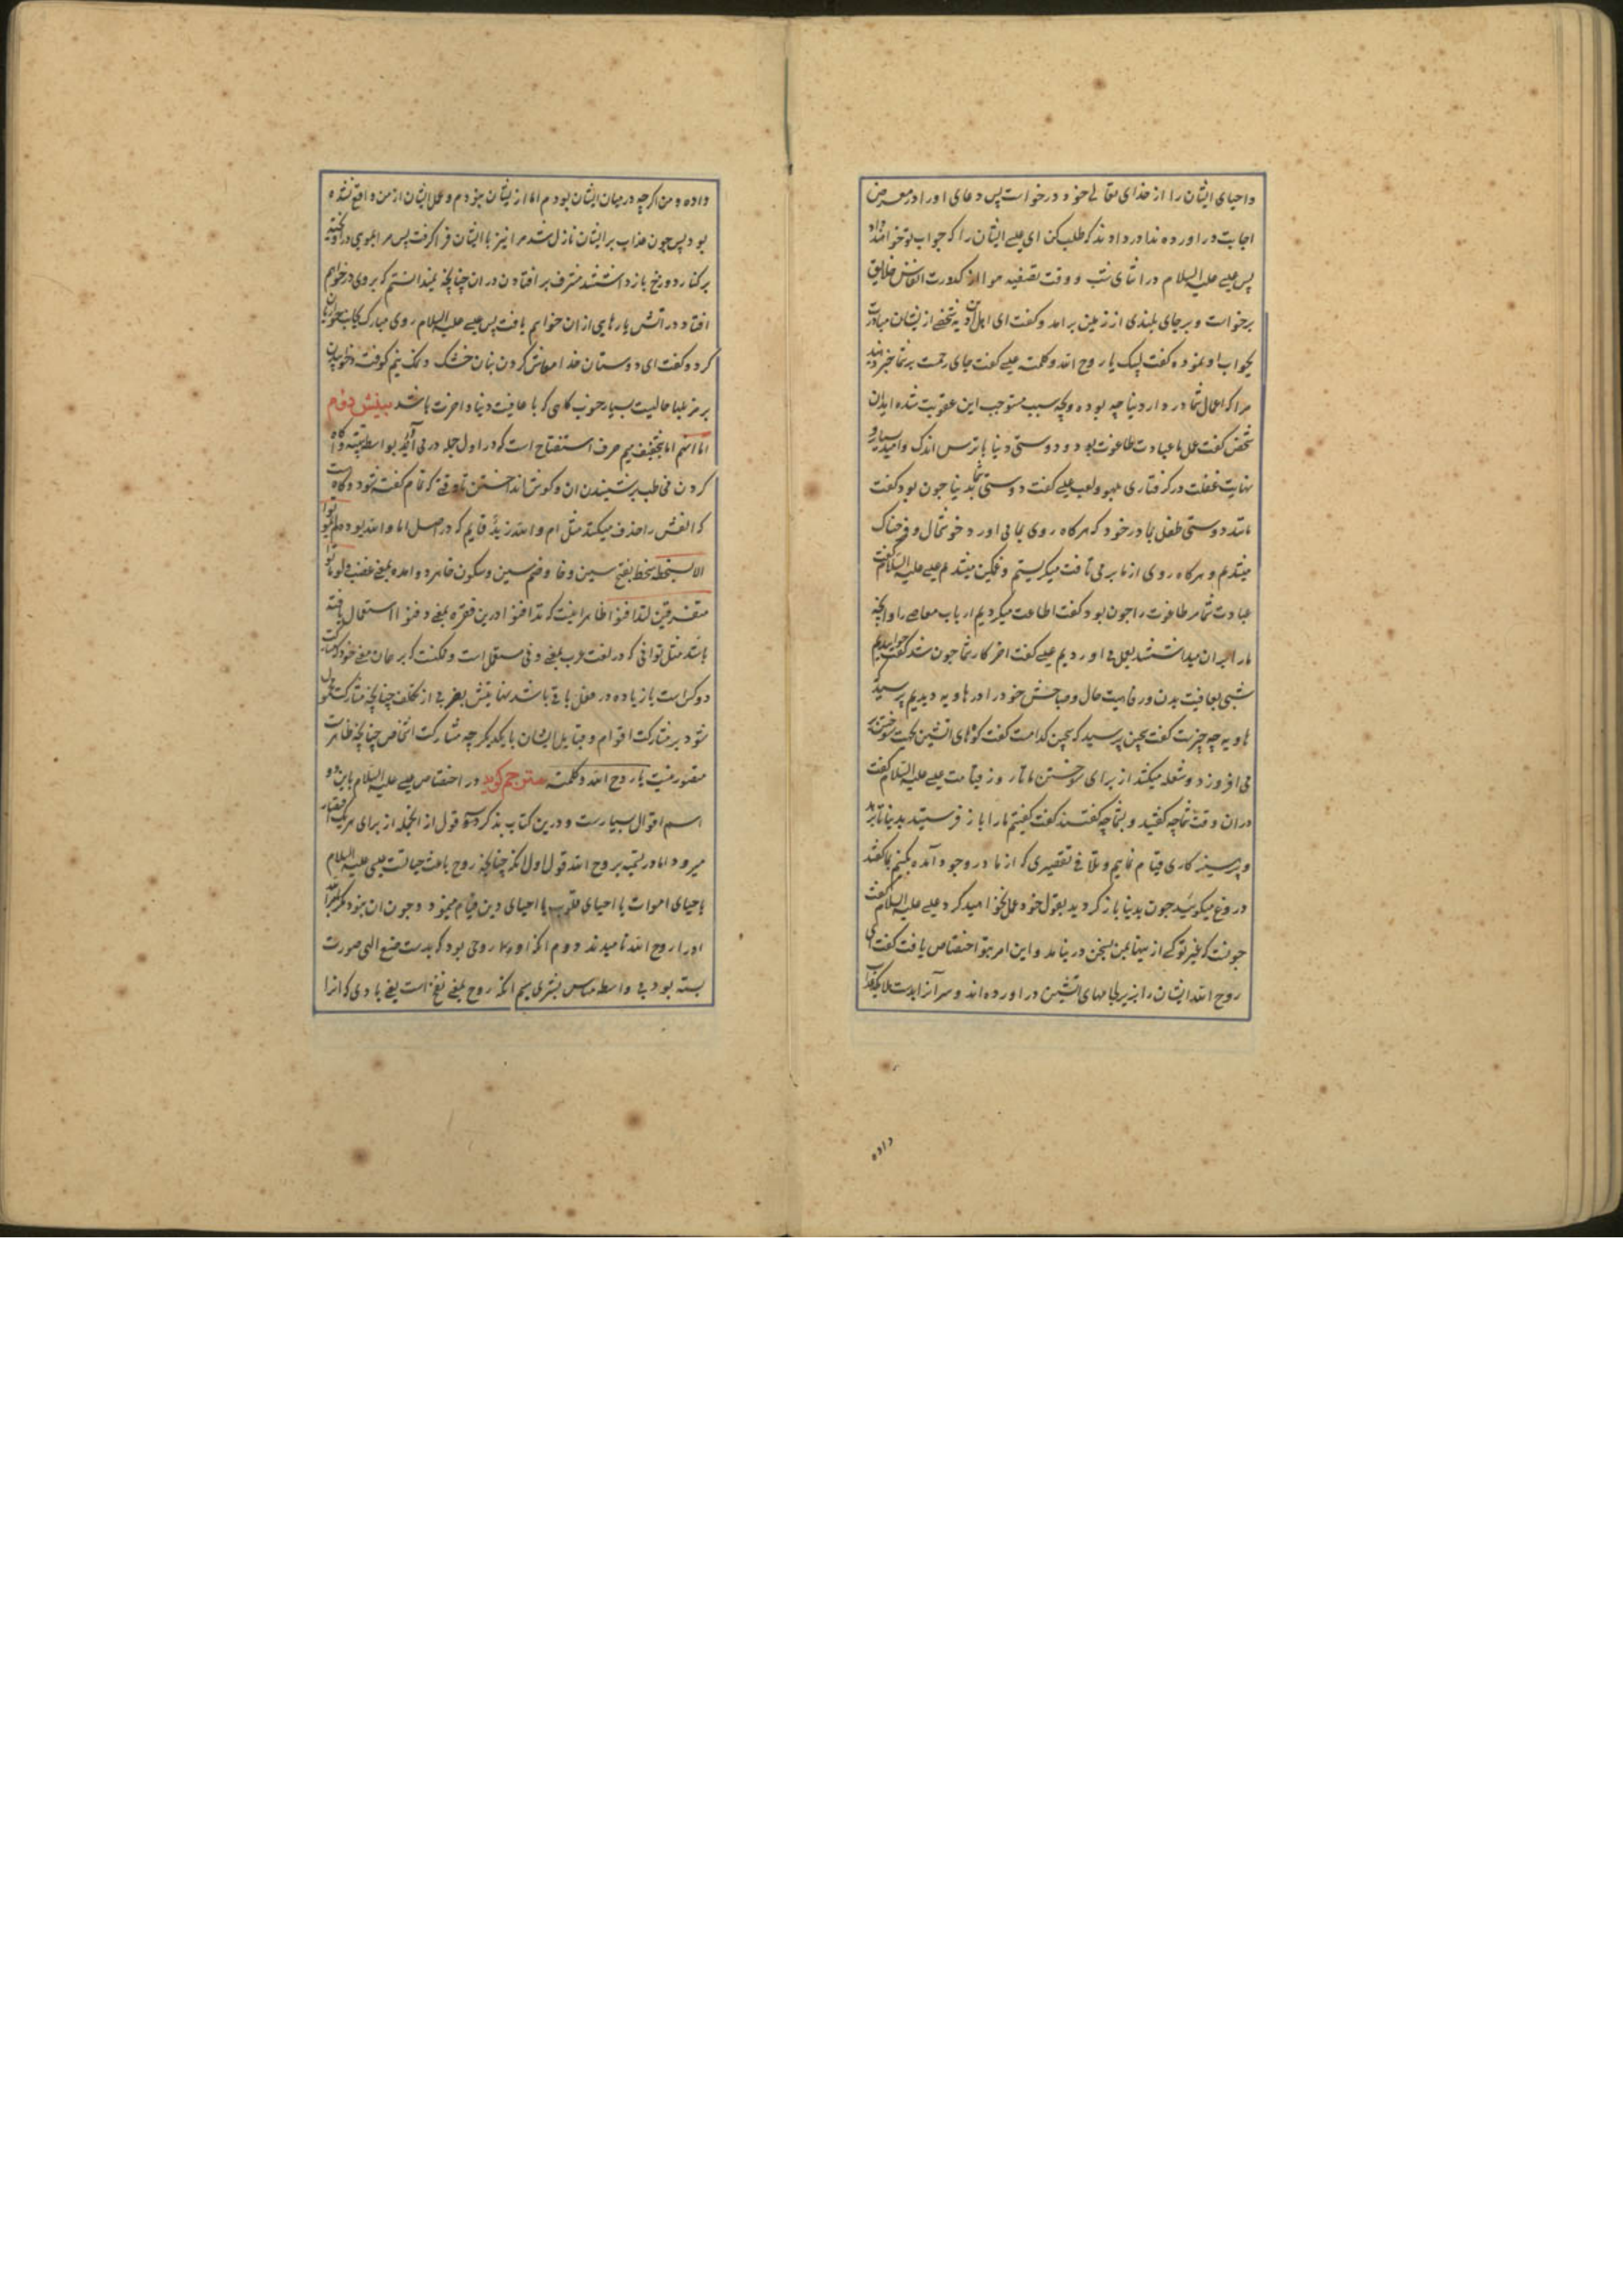 واحیای ایشان را از خدای تعالی خود درخواست پس دعای او را در معرض
اجابت در اورده ندا در دادند که طلب کن ای عیسی ایشان را که جواب تو خواهند داد
پس عیسی علیه السلام در اثنای شب و وقت تصفیه هوا از کدورت انفاس خلایق
برخواست و بر جای بلندی از زمین برامد و کفت ای اهل قریه شخصی از ایشان مبادرت
بجواب او نموده کفت لبیک یا روح الله و کلمته عیسی کفت جای رحمت بر شما خبر دهید
مرا که اعمال شما در دار دنیا چه بوده و چه سبب مستوجب این عقوبت شده اید ان
شخص کفت عمل ما عبادت طاغوت بود و دوستی دنیا با ترس اندک و امید بسیار و
نهایت غفلت در کرفتاری لهو و لعب عیسی کفت دوستی شما بدنیا چون بود کفت
مانند دوستی طفل بمادر خود که هرکاه روی بما می اورد خوشحال و فرحناک
میشدیم و هرکاه روی از ما بر می تافت میکریستیم و غمکین میشدیم عیسی علیه السلام کفت
عبادت شما مر طاغوت را چون بود کفت اطاعت میکردیم ارباب معاصی را و انچه
ما را بر ان میداشتند بعمل می اوردیم عیسی کفت اخر کار شما چون شد کفت خوابیدیم
شبی بعافیت بدن و رفاهیت حال و صباحش خود را در هاویه دیدیم پرسید که
هاویه چه چیزست کفت سجین پرسید که سجین کدامست کفت کوههای اتشین بجهت سوختن
می افروزد و شعله میکشد از برای سوختن ما تا روز قیامت عیسی علیه السلام کفت
در ان وقت شما چه کفتید و بشما چه کفتند کفت کفتیم ما را باز فرستید بدنیا تا بزهد
و پرهیزکاری قیام نماییم و تلافی تقصیری که از ما در وجود آمده بکنیم بما کفتند
دروغ میکوئید چون بدنیا باز کردید بقول خود عمل نخواهید کرد عیسی علیه السلام کفت
چونست که غیر تو کسی از ینها بمن بسخن در نیامد و این امر بتو اختصاص یافت کفت ای
روح الله ایشان را بزیر لجامهای اتشین در اورده اند و سر آنرا بدست ملایکه عذاب
داده
داده و من اکرچه در میان ایشان بودم اما از یشان نبودم و عمل ایشان از من واقع نشده
بود پس چون عذاب بر ایشان نازل شد مرا نیز با ایشان فرا کرفت پس مرا بموی در اویخته
بر کنار دوزخ باز داشتند مشرف بر افتادن در ان چنانچه نمیدانستم که بروی در خواهم
افتاد در اتش یا رهایی از ان خواهم یافت پس عیسی علیه السلام روی مبارک بجانب حواریان
کرد و کفت ای دوستان خدا معاش کردن بنان خشک و نمک نیم کوفته و خوابیدن
بر مزبلها حالیست بسیار خوب کاهی که با عافیت دنیا و اخرت باشد بینش دوم
اما انهم اما بتخفیف میم حرف استفتاح است که در اول جمله در می آید بواسطه تنبیه و آکاه
کردن مخاطب بر شنیدن ان و کوش انداختن تا وقتی که تمام کفته شود و کاهست
که الفش را حذف میکنند مثل ام والله زید قایم که در اصل اما والله بوده
الا بسخط سخط بفتح سین و خا و ضم سین و سکون خا هر دو امده بمعنی غضب
متفرقین لتدافنوا ظاهرا اینست که تدافنوا درین فقره بمعنی دفنوا استعمال یافته
باشد مثل توافی که در لغت عرب بمعنی وفی مستعمل است و ممکنست که بر همان معنی خود که مشارکت
دو کس است یا زیاده در فعل باقی باشد نهایتش بضربی از تکلف چنانچه مشارکت محمول
شود بر مشارکت اقوام و قبایل ایشان با یکدیکر چه مشارکت اشخاص چنانچه ظاهرست
متصور نیست یا روح الله و کلمته مترجم کوید در اختصاص عیسی علیه السلام باین دو
اسم اقوال بسیارست و درین کتاب بذکر سه قول از انجمله از برای هریک اقتصار
میرود اما در تسمیه بروح الله قول اول انکه چنانچه روح باعث حیاتست عیسی علیه السلام
باحیای اموات یا احیای قلوب یا احیای دین قیام مینمود و چون ان بزرکوار
او را روح الله نامیدند دوم انکه او روحی بود که بدست صنع الهی صورت
بسته بود بی واسطه مساس بشری سیم انکه روح بمعنی نفخ است یعنی بادی که انرا